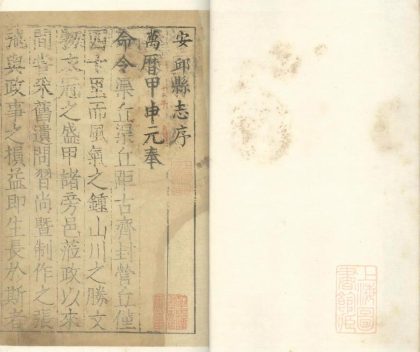 安邱縣志序
萬曆甲申元奉
命令渠丘渠丘距古齊封營丘僅
里而風氣之鍾山川之勝文
物衣冠之盛甲諸旁邑蒞政以來
間嘗采舊遺問習尚暨制作之張
弛與政事之損益即生長於斯者
上海圖
書館藏